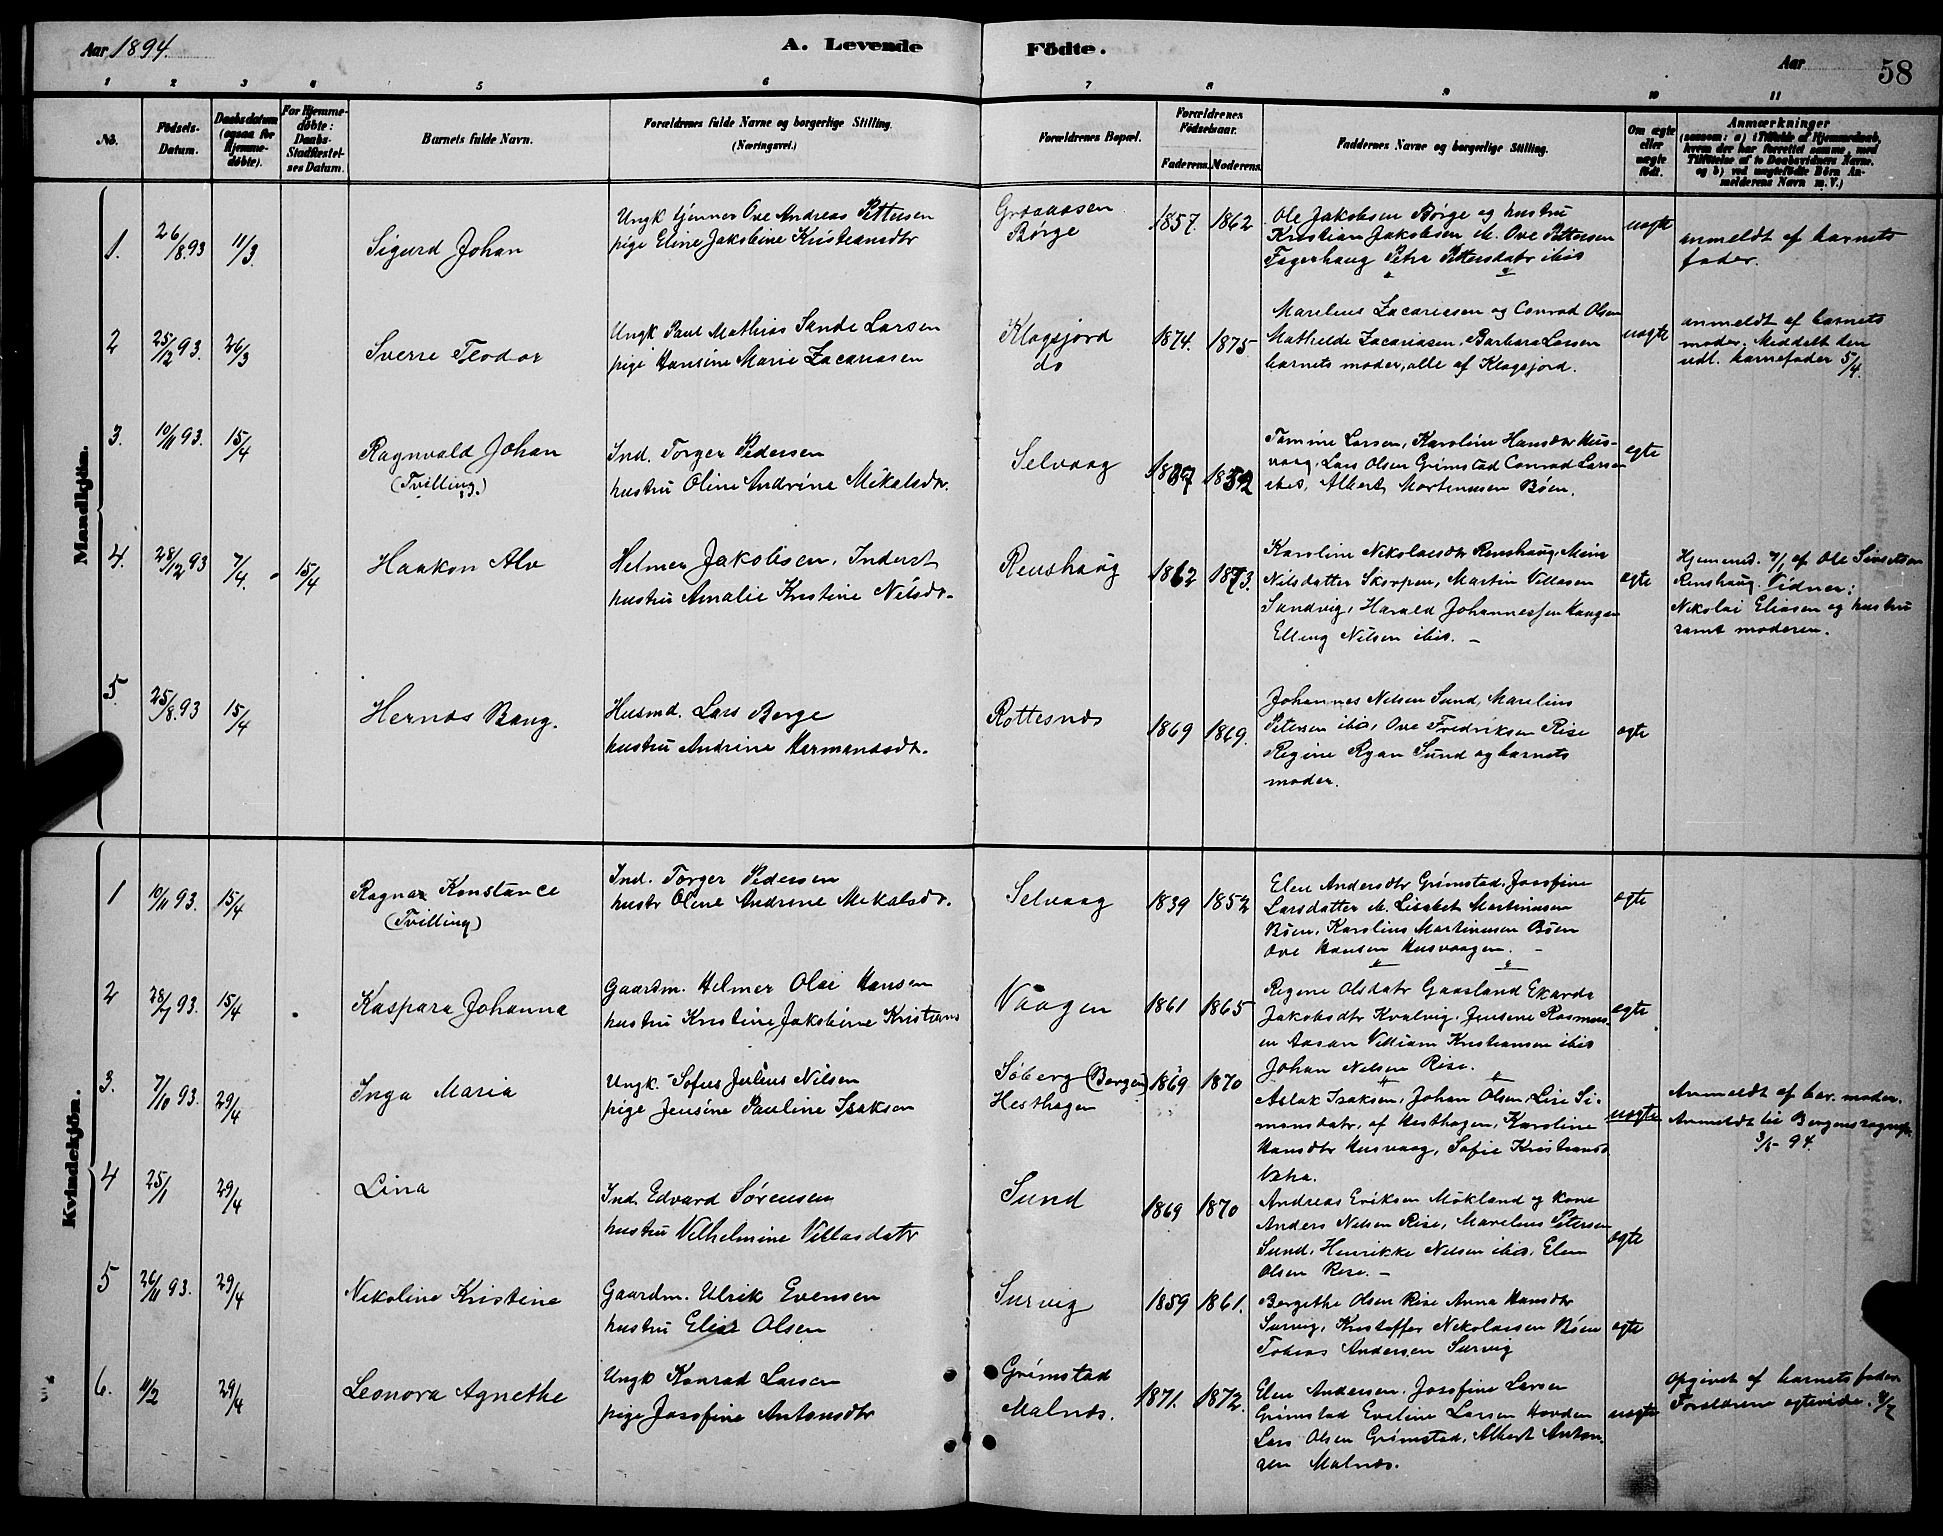 Aar 1894.
A. Levende Födte.
Aar
58
1 2 3 4 5 6 7 8 9 10 11
No.
Födsels-Datum.
Daabsdatum (ogsaa for Hjemme-døbte).
For Hjemme-døbte: Daabs-Stadfæstel-ses Datum.
Barnets fulde Navn.
Forældrenes fulde Navne og borgerlige Stilling. (Næringsvei.)
Forældrenes Bopæl.
Forældrenes Födselsaar.
Faderens. Moderens.
Faddernes Navne og borgerlige Stilling.
Om ægte eller uægte födt.
Anmærkninger
og b) ved uægtefödte Börn An-
melderens Navn m. V.)
Mandkjön.
1. 26/8.93 11/3. Sigurd Johan
Ungk tjener Ove Andreas Pettersen
pige Eline Jakobine Kristiansdtr
Graaaasen
Børge
1857. 1862
Ole Jakobsen Børge og hustru
Kristian Jakobsen ib. Ove Pettersen
Fagerhaug Petra Pettersdatr ibis
uægte
anmeldt af barnets
fader.
2 25/12 93. 26/3 Sverre Teodor
Ungk Paul Mathias Sande Larsen
pige Hansine Marie Zacariasen
Klogsjord
do
1874. 1875
Marelius Zacariasen og Conrad Olsen
Mathilde Zacariasen, Barbara Larsen
barnets moder, alle af Klogsjord.
uægte
anmeldt af barnets
moder. Meddelt den
udl. barnefader 5/4.
3. 10/11 93. 15/4 Ragnvald Johan
(Tvilling.)
Ind. Torger Pedersen
hustru Oline Andrine Mikalsdtr.
Selvaag
1852
Tomine Larsen, Karoline Hansdtr Hus-
vaag, Lars Olsen Grimstad Conrad Larsen
ibis, Albert Martinusen Bøen.
ægte
4. 28/12 93 7/4. 15/4 Haakon Alv
Helmer Jakobsen. Inderst
hustru Amalie Kristine Nilsdtr.
Renshaug
1862 1873.
Karoline Nikolaisdtr Renshaug, Mina
Nilsdatter Skorpen, Martin Villasen
Sandvig, Harald Johannessen Haugen
Elling Nilsen ibis. –
ægte
Hjemmed. 7/1 af Ole Sivertsen
Renshaug. Vidner:
Nikolai Eliasen og hustru
samt moderen.
5. 25/8.93 15/4 Hernos Baug.
Husmd. Lars Borge
hustru Andrine Hermansdtr.
Rottesnes
1869 1869.
Johannes Nilsen Sund, Marelius
Petersen ibis, Ove Fredriksen Rise
Regine Ryan Sund og barnets
moder.
ægte
Kvindekjön.
1 10/11 93. 15/4 Ragna Konstance
(Tvilling)
Ind. Torger Pedersen
hustr Oline Andrine Mikalsdtr.
Selvaag
1839 1852
Elen Andersdtr Grimstad, Josefine
Larsdatter ib. Lisabet Martinusen
Bøen, Karolius Martinusen Bøen
Ove Hansen Husvaagen. –
ægte
2 28/7 93. 15/4 Kaspara Johanna
Gaardm. Helmer Olai Hansen
hustru Kristine Jakobine Kristians
Vaagen
1861 1865
Regine Olsdatr Gaasland Ekarda
Jakobsdtr Kvalvig, Jensine Rasmus-
en Aasan Villiam Kristiansen ibis
Johan Nilsen Rise.
ægte
3. 7/10 93. 29/4 Inga Maria
Ungk. Sofus Julius Nilsen
pige Jensine Pauline Isaksen
Søberg (Borgen)
Hesthagen
1869 1870
Aslak Isaksen, Johan Olsen, Lise Si-
monsdatr. af Hesthagen, Karoline
Hansdtr Husvaag, Sofie Kristiansd
uægte
Anmeldt af bar. moder.
Anmeldt til Borgens sognepr.
3/5 – 94.
4 25/1 29/4 Lina
Ind. Edvard Sørensen
hustru Vilhelmine Villasdatr
Sund
1869 1870
Andreas Eriksen Møkland og kone
Anders Nilsen Rise, Marelius Petersen
Sund, Henrikke Nilsen ibis, Elen
Olsen Rise. –
ægte
5 26/11 93. 29/4 Nikoline Kristine
Gaardm. Ulrik Evensen
hustru Elise Olsen
Survig
1859 1861.
Bergithe Olsen Rise Anna Hansdtr
Survig, Kristoffer Nikolaisen Bøen
Tobias Andersen Survig
ægte
6. 11/2 29/4 Leonora Agnethe
Ungk Konrad Larsen
pige Josefine Antonsdtr
Grimstad
Malnes.
1871. 1872.
Elen Andersen, Josefine Larsen
Grimstad Eveline Larsen Hovden
Lars Olsen Grimstad, Albert Anton-
sen Malnes.
uægte
opgivet af barnets fader
Forældrene ægteviede.